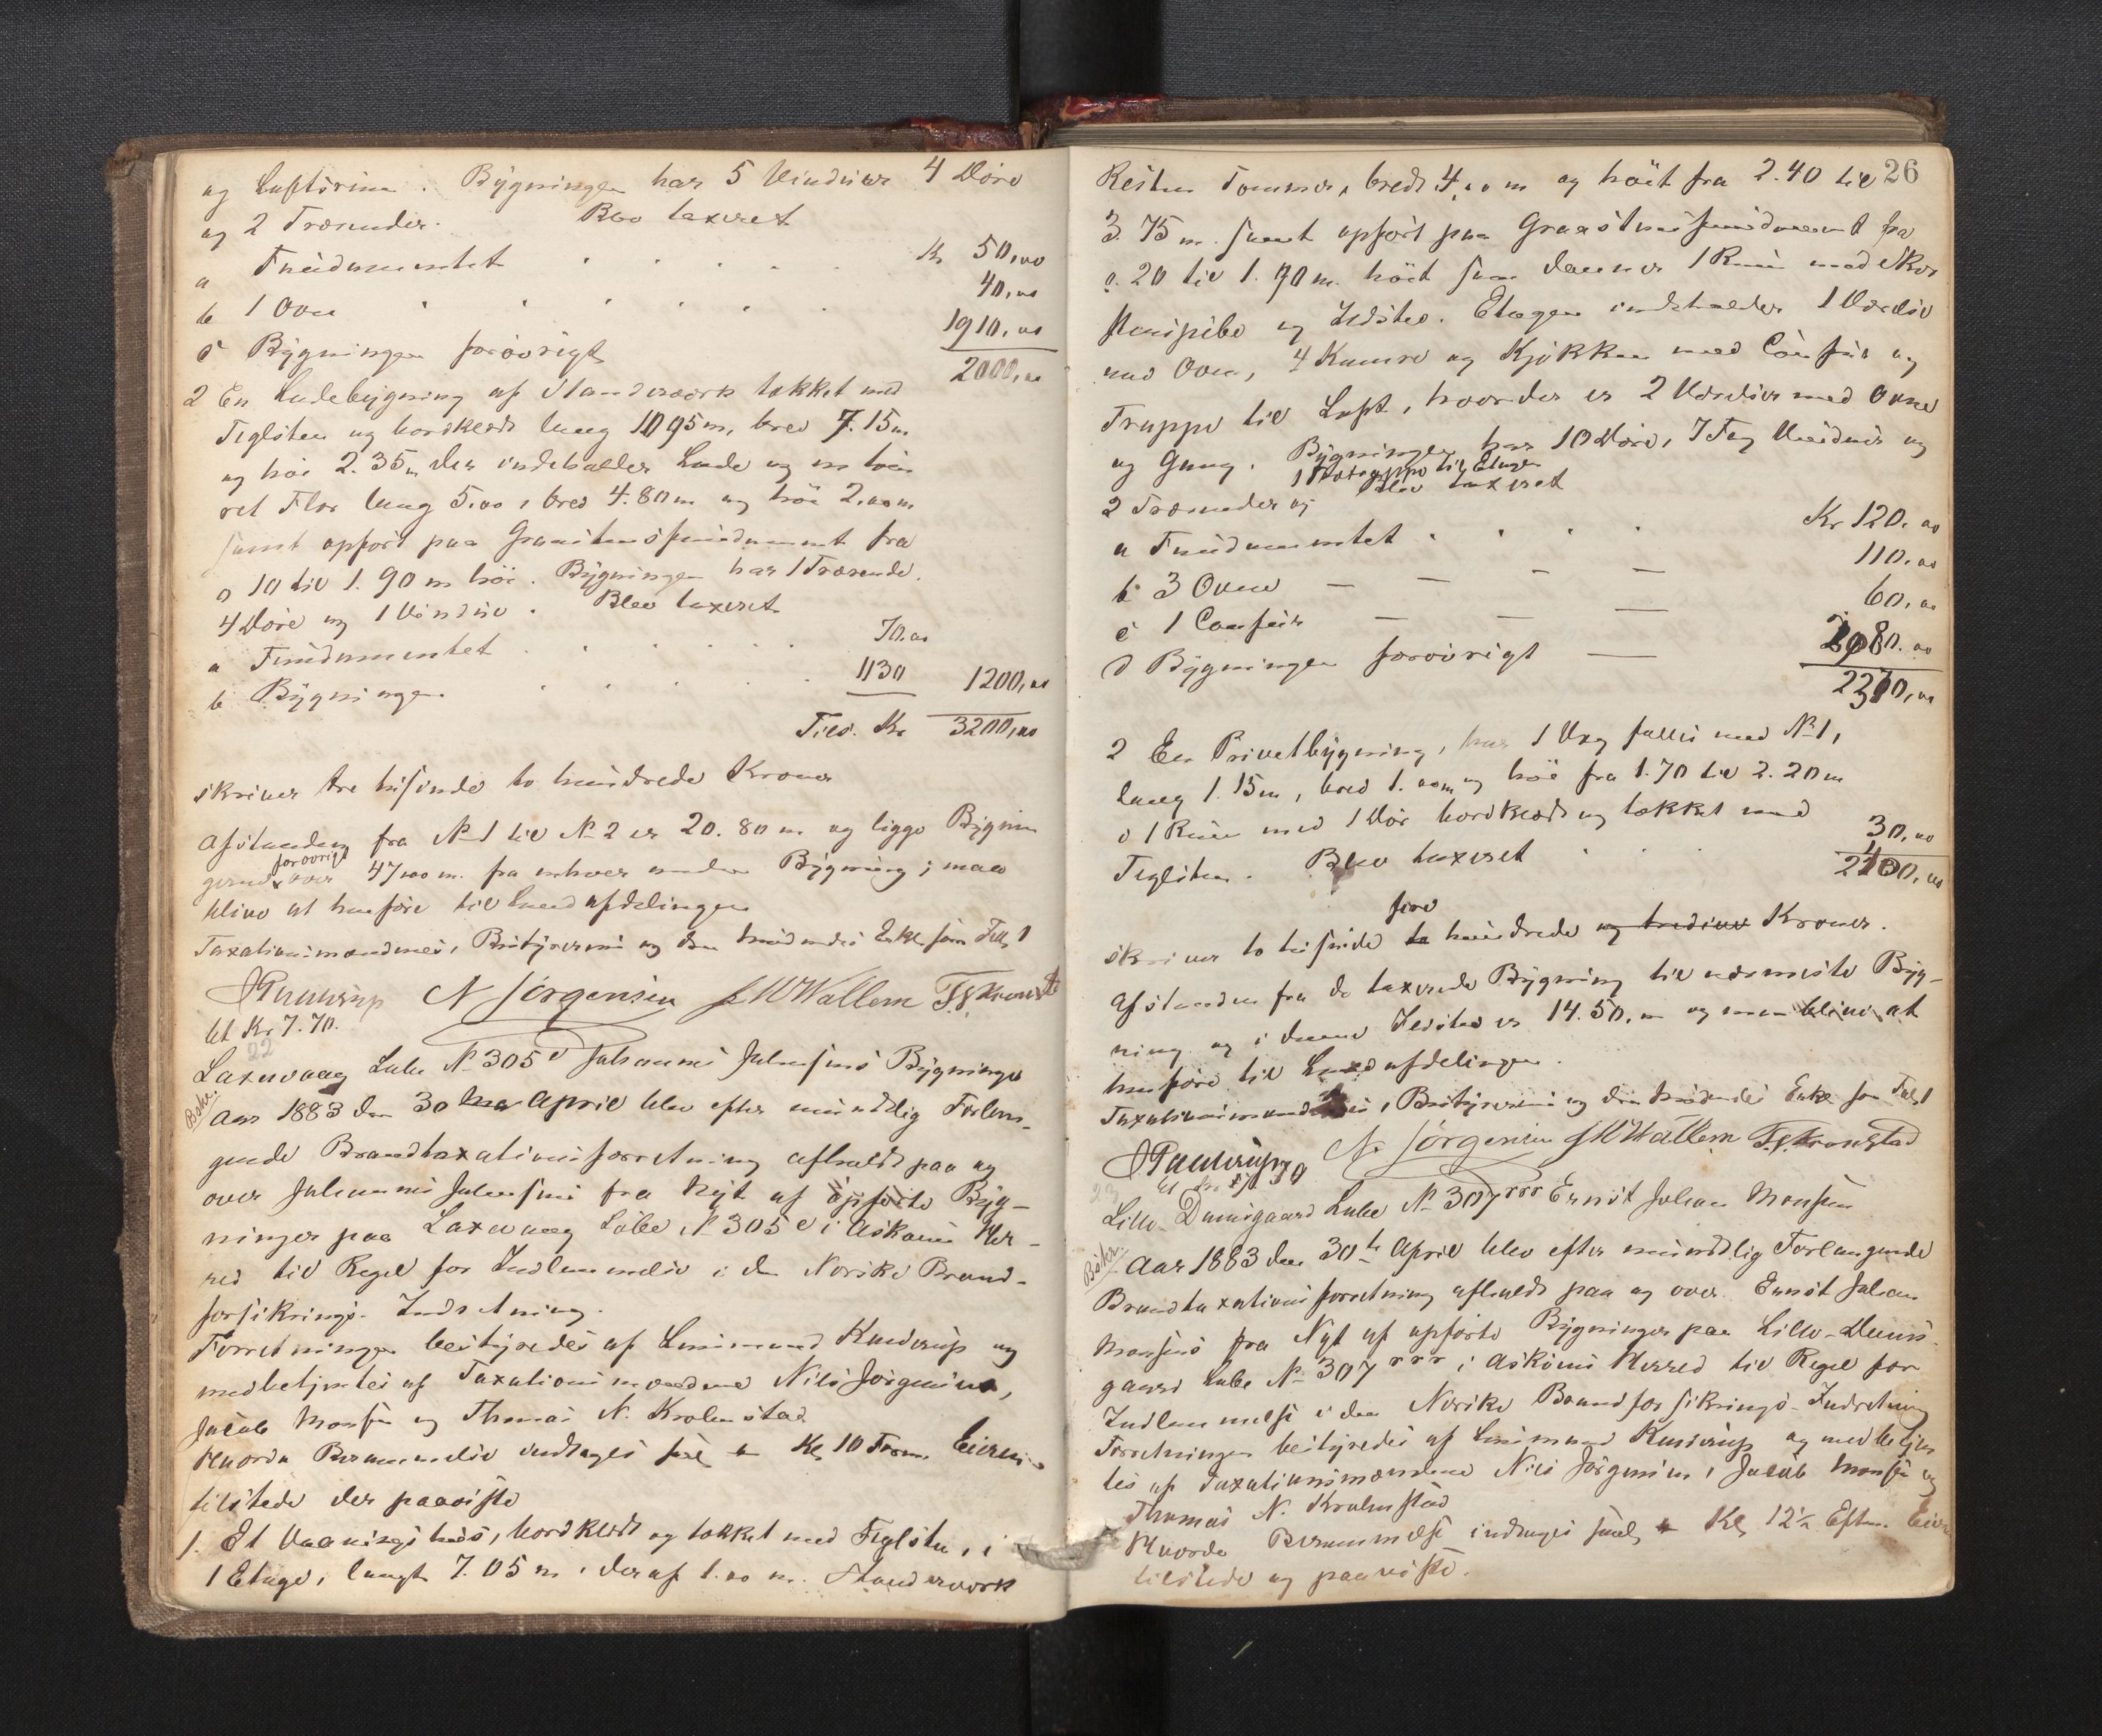 og Loftsrum. Bygningen har 5 Vinduer 4 Døre
og 2 Trærender. Blev taxeret
a Fundamentet Kr 50,00
b 1 Ovn 40,00
c Bygningen forøvrigt 1910,00
2000,00
2 En Ladebygning af Standerværk tækket med
Teglsten og bordklædt lang 10 95 m, bred 7.15 m
og høi 2.35 m der indeholder Lade og
Flor lang 5.00, bred 4.80 m og høi 2.00 m
samt opført paa Graastensfundament fra
0 10 til 1.90 m høi. Bygningen har 1 Trærende.
4 Døre og 1 Vindue. Blev taxeret
a Fundamentet 70.00
b Bygningen 1130 1200,00
Tils. Kr 3200,00
skriver tre tusinde to hundrede Kroner
Afstanden fra No 1 til No 2 er 20.80 m og ligge Bygnin
gerne forøvrigt over 47,00 m. fra enhver anden Bygning; maa
blive at henføre til Landafdelingen
Taxationsmændenes, Bestyrerens og den brugendes Enke som Fol. 1
JKnudrup N Jørgensen J M Wallem T. N. Kronstad
bt Kr 7.70.
22
Laxevaag Løbe No 305 e Johannes Johnsens Bygninger
Bskr.
Aar 1883 den 30 April blev efter mundtlig Forlan-
gende Brandtaxationsforretning afholdt paa og
over Johannes Johnsens fra Nyt af opførte Byg-
ninger paa Laxevaag Løbe No 305 e i Askøens Her-
red til Regel for Indlemmelse i den Norske Brand-
forsikrings-Indretning.
Forretningen bestyredes af Lensmand Knudrup og
medbetjentes af Taxationsmændene Nils Jørgensen,
Jacob Monsen og Thomas N. Krohnstad
Hvorda Berammelse indtoges sad Kl 10 Form. Eieren
tilstede der paaviste
1. Et Vaaningshus, bordklædt og tækket med Teglsten, i
1 Etage, langt 7.05 m, deraf 1.00 m. Standerværk
26
Resten Tømmer, bredt 4.00 m og høit fra 2.40 til
3.75 m. samt opført paa Graastensfundament fra
0.20 til 1.70 m. høit som danner 1 Rum med Skor
stenspibe og Ildsted. Etagen indeholder 1 Værelse
med Ovn, 4 Kamre og Kjøkken med Comfur og
Trappe til Loft, hvorder er 2 Værelser med Ovne
og Gang. Bygningen har 10 Døre, 7 Fag Vinduer og
2 Trærender og 1 Trætrappe til Etagen Blev taxeret
a Fundamentet Kr 120.00
b 3 Ovne 110.00
c 1 Comfur 60,00
d Bygningen forøvrigt 2080.00
2370,00
2 En Privetbygning, har 1 Væg fælles med No 1,
lang 1.15 m, bred 1.00 m og høi fra 1.70 til 2.20 m
o 1 Rum med 1 Dør bordklædt og tækket med
Teglsten. Blev taxeret 30,00
2400,00
fire
skriver to tusinde to hundrede og tredive Kroner.
Afstanden fra de taxerede Bygning til nærmeste Byg-
ning og i denne Ildsted er 14.50. m og maa blive at
henføre til Landafdelingen.
Taxationsmændenes, Bestyrerens og den brugendes Enke som Fol. 1
JKnudrup N. Jørgensen J M Wallem T. N. Kronstad
23
Lille-Damsgaard Løbe No 307 rrr Ernst Johan Monsen
Bskr.
Aar 1883 den 30te April blev efter mundtlig Forlangende
Brandtaxationsforretning afholdt paa og over Ernst Johan
Monsens fra Nyt af opførte Bygninger paa Lille-Dams-
gaard Løbe No 307 rrr i Askøens Herred til Regel for
Indlemmelse i den Norske Brandforsikrings-Indretning
Forretningen bestyredes af Lensmand Knudrup og medbetjen
tes af Taxationsmændene Nils Jørgensen, Jacob Monsen og
Thomas N. Krohnstad
Hvorda Berammelse indtoges sad Kl 12½ Eftm. Eieren
tilstede og paaviste.